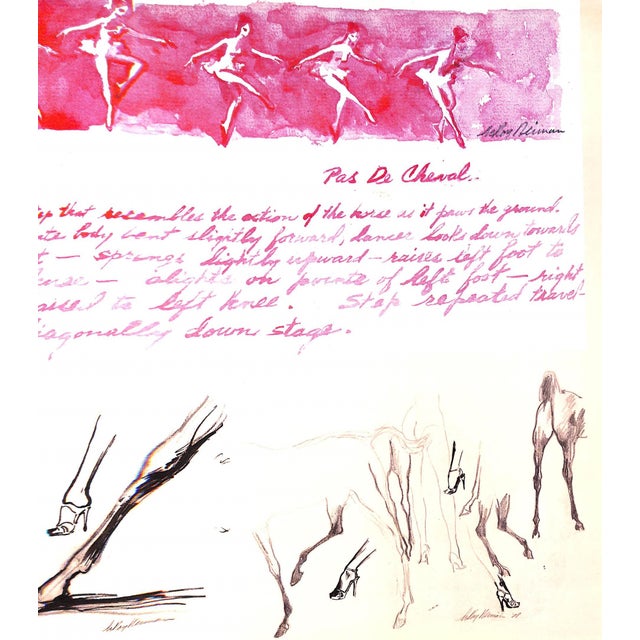 LeRoy Neiman
Pas De Cheval..
step that resembles the action of the horse as it paws the ground.
body bent slightly forward, dancer looks down towards
— springs lightly upward — raises left foot to
— alights on pointe of left foot — right
raised to left knee. Step repeated travel-
diagonally down stage.
LeRoy Neiman
LeRoy Neiman